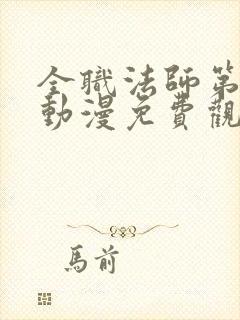 全職法師第
動漫免費觀
馬前